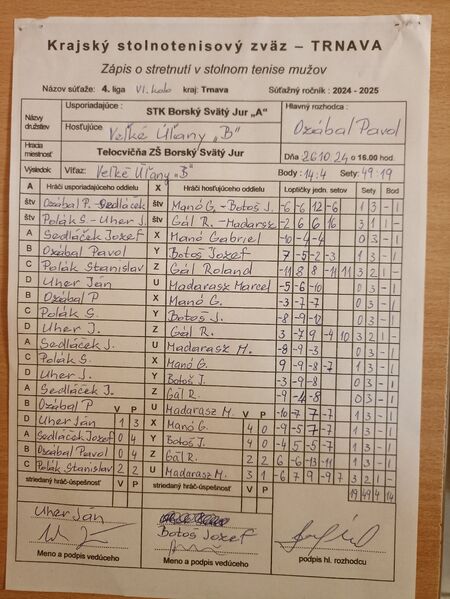 Krajský stolnotenisový zväz – TRNAVA
Zápis o stretnutí v stolnom tenise mužov
Názov súťaže: 4. liga VI. kolo kraj: Trnava Súťažný ročník : 2024 - 2025
Názvy družstiev Usporiadajúce : STK Borský Svätý Jur „A“ Hlavný rozhodca :
Hosťujúce Veľké Úľany „B“ Ozábal Pavol
Hracia miestnosť Telocvičňa ZŠ Borský Svätý Jur Dňa 26.10.24 o 16.00 hod.
Výsledok Víťaz: Veľké Úľany „B“ Body : 14:4 Sety: 49:19
A Hráči usporiadajúceho oddielu X Hráči hosťujúceho oddielu Loptičky jedn. setov Sety Bod
štv Ozábal P.-Sedláček štv Manó G.-Botoš J. -6 -6 12 -6 1 3 -1
štv Polák S - Uher J. štv Gál R.-Madarasz -2 6 6 16 3 1 1 -
A Sedláček Jozef X Manó Gabriel -10 -4 -4 0 3 - 1
B Ozábal Pavol Y Botoš Jozef 7 -5 -2 -3 1 3 - 1
C Polák Stanislav Z Gál Roland -11 8 8 -11 11 3 2 1 -
D Uher Ján U Madarasz Marcel -5 -6 -10 0 3 - 1
B Ozábal P X Manó G. -3 -7 -7 0 3 - 1
C Polák S. Y Botoš J. -8 -9 -12 0 3 - 1
D Uher J. Z Gál R. 3 -7 9 -4 10 3 2 1 -
A Sedláček J. U Madarasz M. -8 -9 -3 0 3 - 1
C Polák S. X Manó G. 9 -9 -8 -7 1 3 - 1
D Uher J. Y Botoš J. -3 -9 -8 0 3 - 1
A Sedláček J. Z Gál R. -9 -4 -8 0 3 - 1
B Ozábal P V P U Madarasz M. V P -10 7 7 -7
D Uher Ján 1 3 X Manó G. 4 0 -9 -5 7 -7 1 3 - 1
A Sedláček Jozef 0 4 Y Botoš J. 4 0 -4 5 -5 -7 1 3 - 1
B Ozábal Pavol 0 4 Z Gál R. 2 2 6 -6 -13 -11 1 3 - 1
C Polák Stanislav 2 2 U Madarasz M. 3 1 -6 7 9 -9
striedaný hráč-úspešnosť V P striedaný hráč-úspešnosť V P 19 49 4 14
Uher Ján Botoš Jozef
Meno a podpis vedúceho Meno a podpis vedúceho podpis hl. rozhodcu